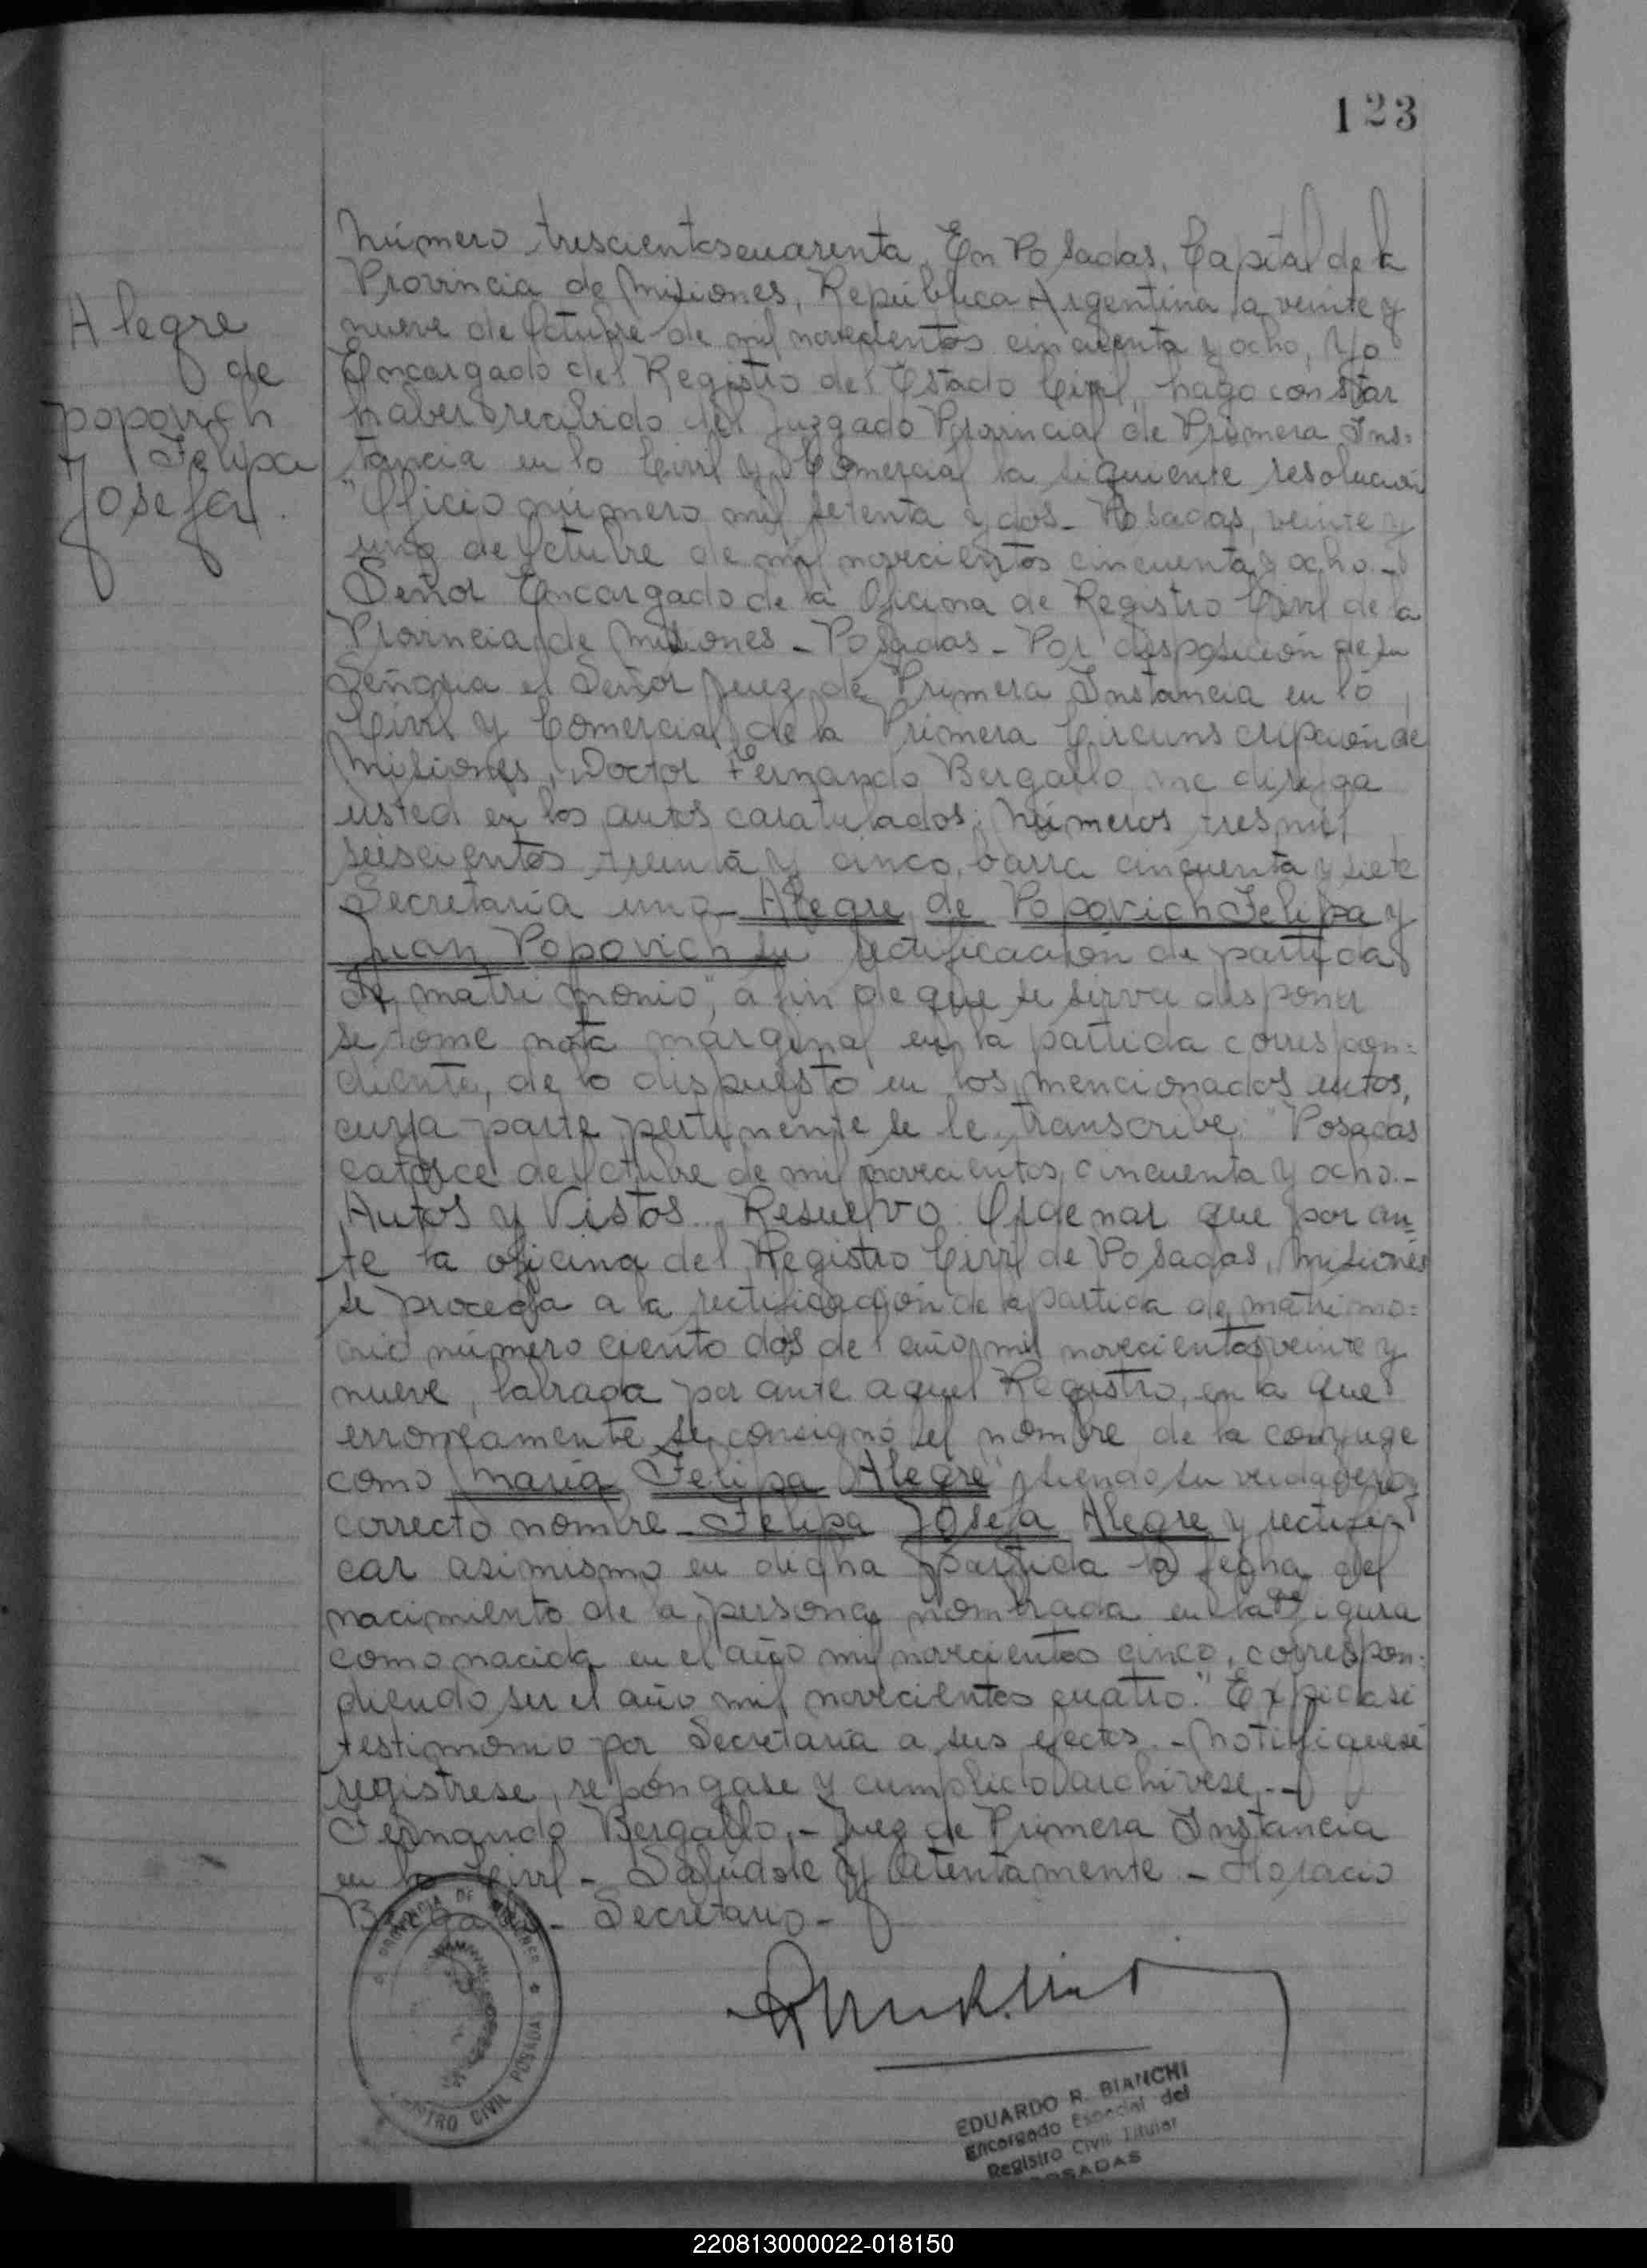 123
Alegre
de
Popovich
Felipa
Josefa.
Número trescientos cuarenta. En Posadas, Capital de la
Provincia de Misiones, República Argentina a veinte y
nueve de Octubre de mil novecientos cincuenta y ocho, Yo
Encargado del Registro del Estado Civil, hago constar
haber recibido del Juzgado Provincial de Primera Ins=
tancia en lo Civil y Comercial la siguiente resolución
"Oficio número mil setenta y dos - Posadas, veinte y
uno de Octubre de mil novecientos cincuenta y ocho.-
Señor Encargado de la Oficina de Registro Civil de la
Provincia de Misiones - Posadas - Por disposición de su
Señoria el Señor Juez de Primera Instancia en lo
Civil y Comercial de la Primera Circunscripción de
Misiones, Doctor Fernando Bergallo, me dirijo a
usted en los autos caratulados: Números tres mil
seiscientos treinta y cinco, barra cincuenta y siete
Secretaria uno - Alegre de Popovich Felipa y
Juan Popovich su rectificación de partida
de matrimonio", a fin de que se sirva disponer
se tome nota marginal en la partida correspon=
diente, de lo dispuesto en los mencionados autos,
cuya parte pertinente se le transcribe: "Posadas
catorce de Octubre de mil novecientos cincuenta y ocho.-
Autos y Vistos... Resuelvo: Ordenar que por an=
te la oficina del Registro Civil de Posadas, Misiones
se proceda a la rectificación de la partida de matrimo=
nio número ciento dos del año mil novecientos veinte y
nueve, labrada por ante aquel Registro, en la que
erroneamente se consignó el nombre de la conyuge
como "María Felipa Alegre" siendo su verdadero y
correcto nombre - Felipa Josefa Alegre y rectifi=
car asimismo en dicha partida la fecha del
nacimiento de la persona nombrada en la que figura
como nacida en el año mil novecientos cinco, correspon=
diendo ser el año mil novecientos cuatro." Expídase
testimonio por Secretaría a sus efectos - Notifiquese
registrese, repóngase y cumplido archivese.-
Fernando Bergallo.- Juez de Primera Instancia
en lo Civil - Salúdole Atentamente - Horacio
Secretario -
PROVINCIA DE MISIONES
REGISTRO CIVIL POSADAS
EDUARDO R. BIANCHI
Encargado Especial del
Registro Civil Titular
POSADAS
220813000022-018150